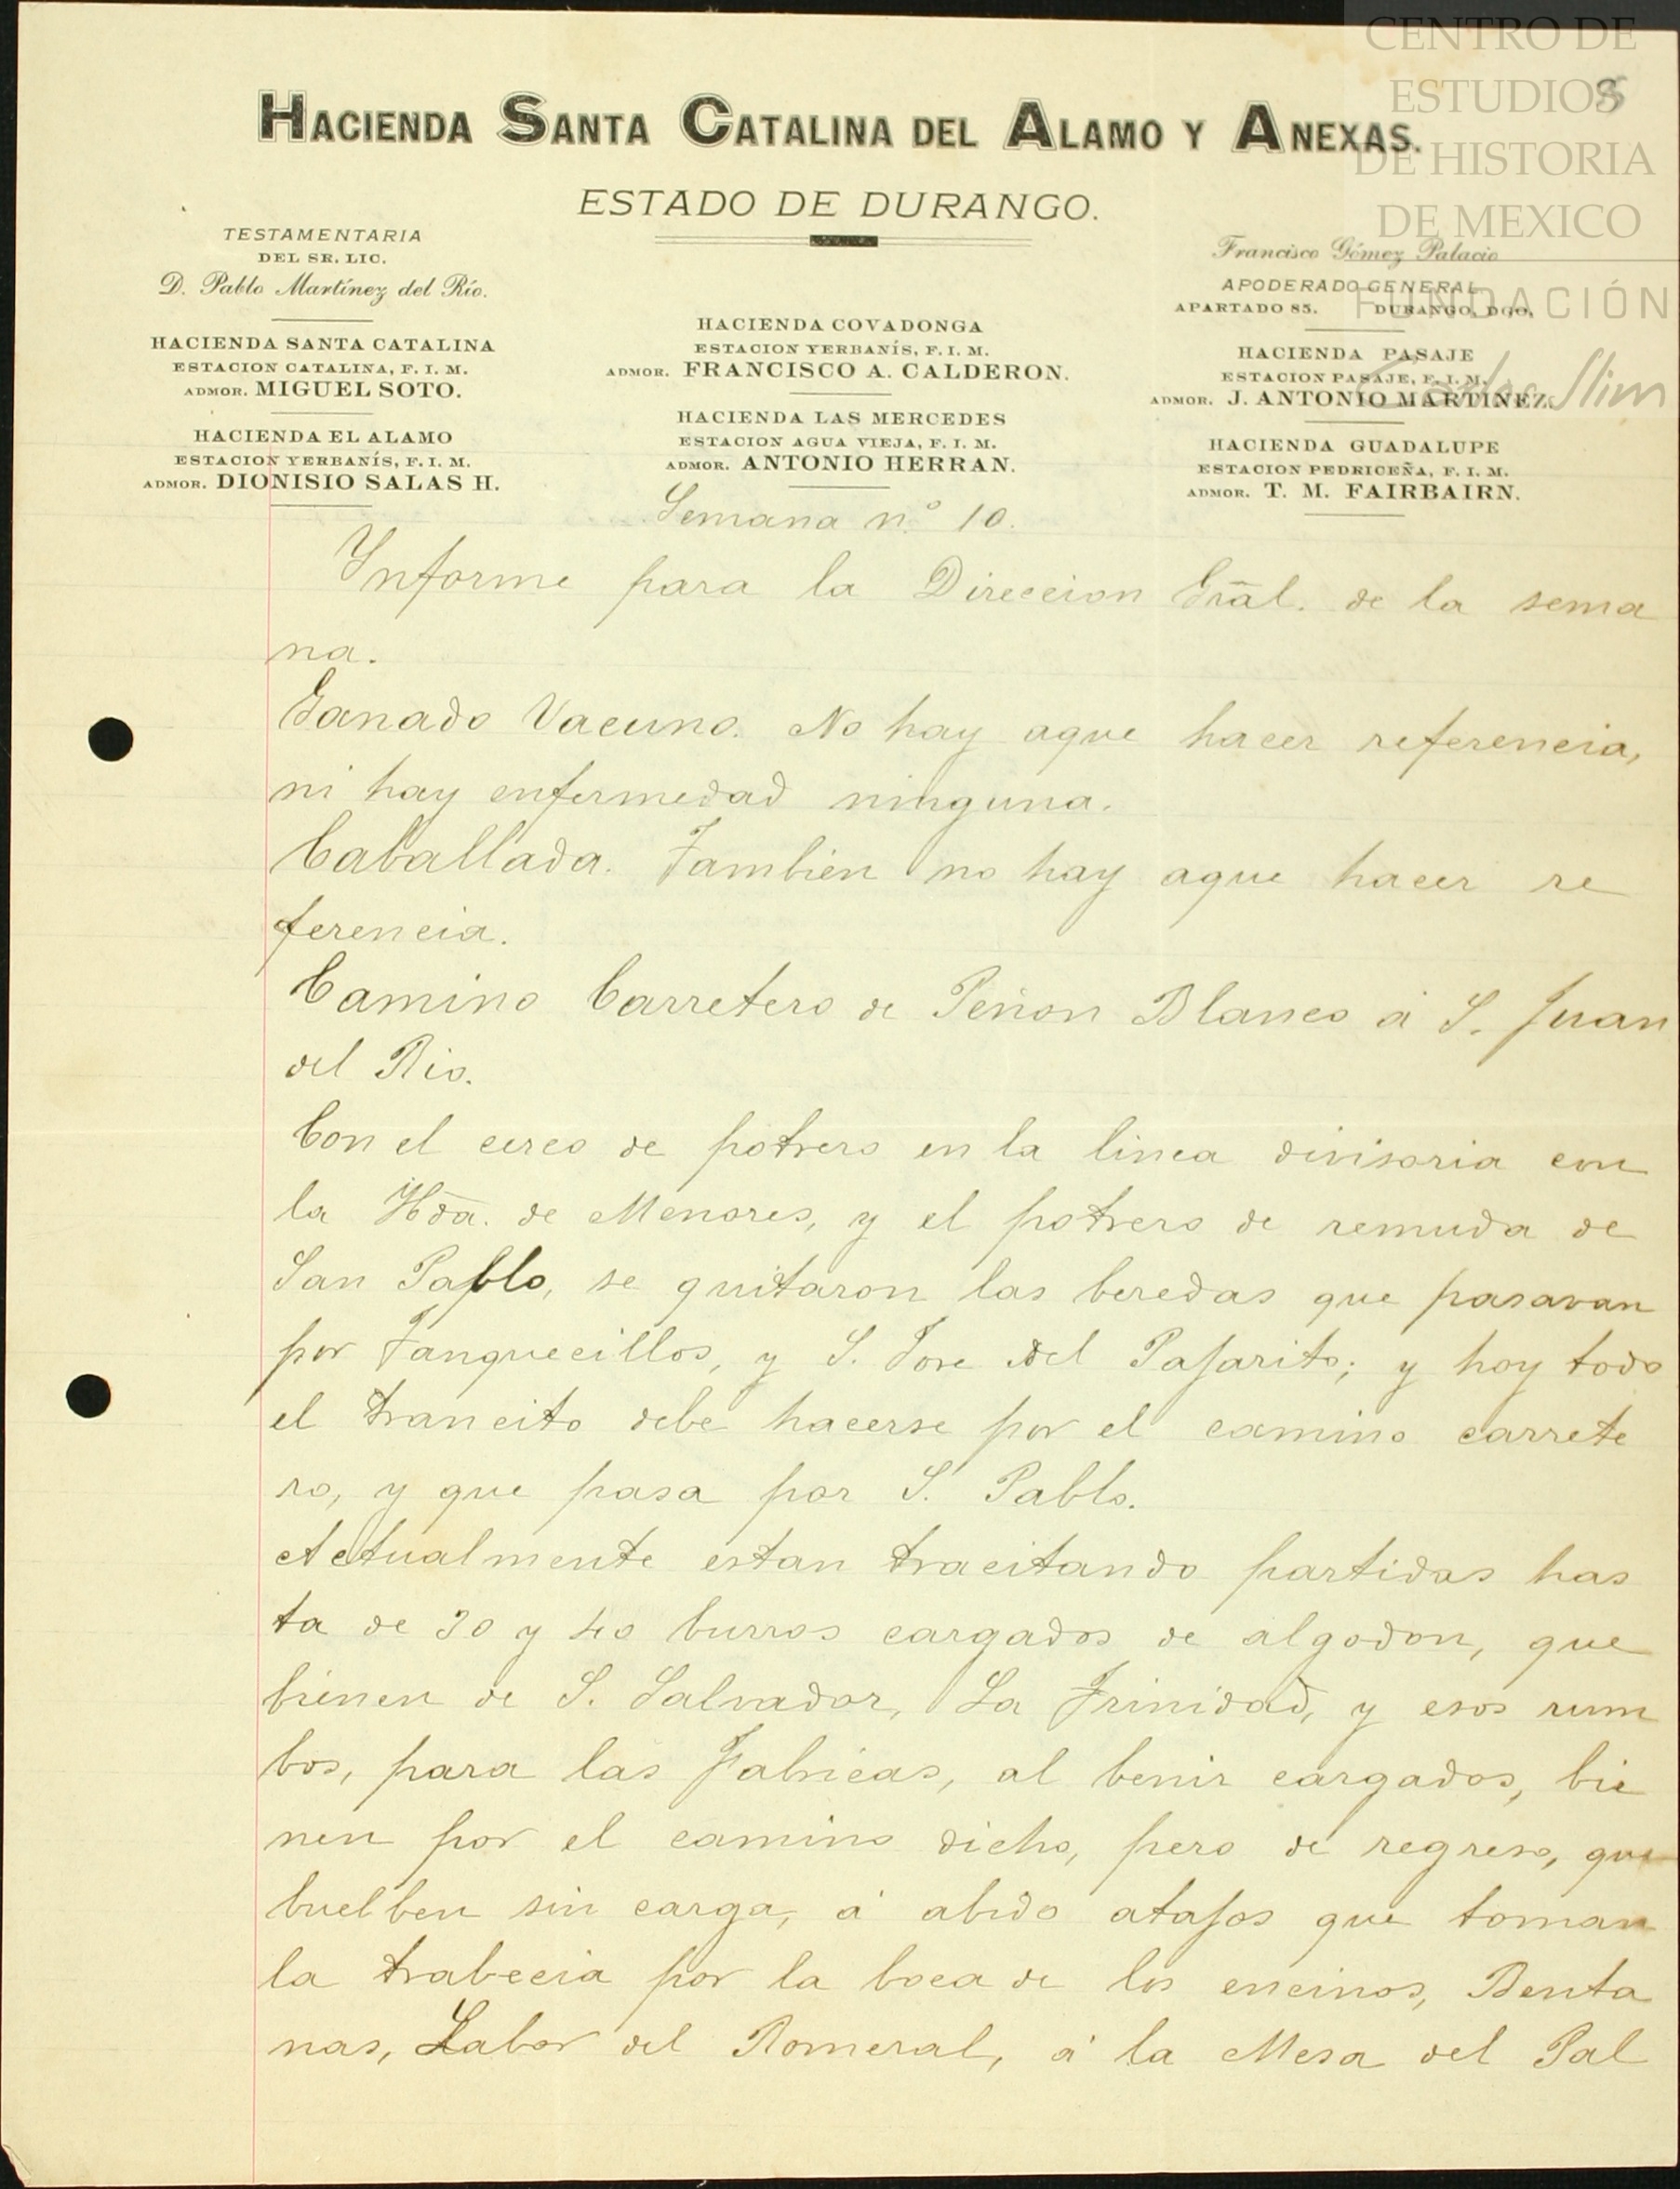 CENTRO DE
ESTUDIOS
DE HISTORIA
DE MEXICO
FUNDACIÓN
Carlos Slim
8
HACIENDA SANTA CATALINA DEL ALAMO Y ANEXAS.
ESTADO DE DURANGO.
TESTAMENTARIA
DEL SR. LIC.
D. Pablo Martínez del Río.
HACIENDA SANTA CATALINA
ESTACION CATALINA, F. I. M.
ADMOR. MIGUEL SOTO.
HACIENDA EL ALAMO
ESTACION YERBANÍS, F. I. M.
ADMOR. DIONISIO SALAS H.
HACIENDA COVADONGA
ESTACION YERBANÍS, F. I. M.
ADMOR. FRANCISCO A. CALDERON.
HACIENDA LAS MERCEDES
ESTACION AGUA VIEJA, F. I. M.
ADMOR. ANTONIO HERRAN.
Francisco Gómez Palacio
APODERADO GENERAL
APARTADO 85. DURANGO, DGO.
HACIENDA PASAJE
ESTACION PASAJE, F. I. M.
ADMOR. J. ANTONIO MARTINEZ.
HACIENDA GUADALUPE
ESTACION PEDRICEÑA, F. I. M.
ADMOR. T. M. FAIRBAIRN.
Semana n.º 10.
Ynforme para la Direccion Gral. de la sema
na.
Ganado Vacuno. No hay aque hacer referencia,
ni hay enfermedad ninguna.
Caballada. Tambien no hay aque hacer re
ferencia.
Camino Carretero de Peñon Blanco á S. Juan
del Rio.
Con el cerco de potrero en la linea divisoria con
la Hda. de Menores, y el potrero de remuda de
San Pablo, se quitaron las beredas que pasavan
por Tanquecillos, y S. Jose del Pajarito; y hoy todo
el trancito debe hacerse por el camino carrete
ro, y que pasa por S. Pablo.
Actualmente estan tracitando partidas has
ta de 30 y 40 burros cargados de algodon, que
bienen de S. Salvador, La Trinidad, y esos rum
bos, para las Fabricas, al benir cargados, bie
nen por el camino dicho, pero de regreso, que
buelben sin carga, á abido atajos que toman
la trabecia por la boca de los encinos, Benta
nas, Labor del Romeral, á la Mesa del Pal